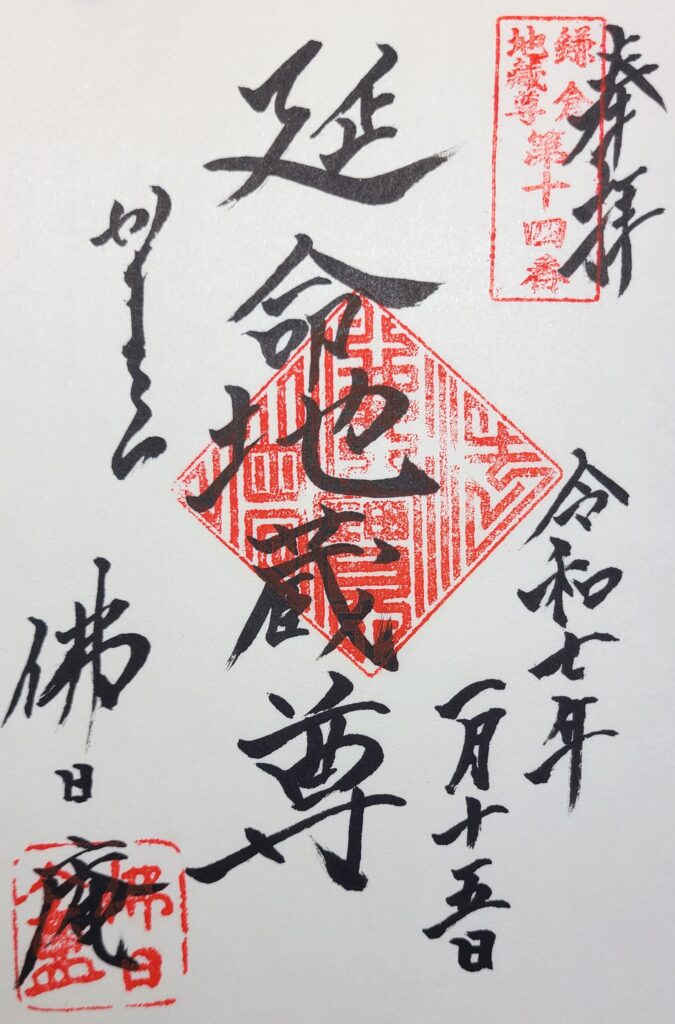 奉拝
鎌倉第十四番
地蔵尊
令和七年
一月十五日
延命地蔵尊
かまくら
佛日庵
佛日